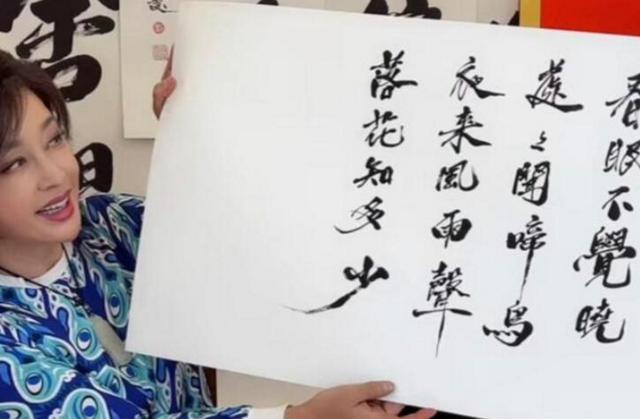 春眠不覺曉
處々聞啼鳥
夜来風雨聲
落花知多少